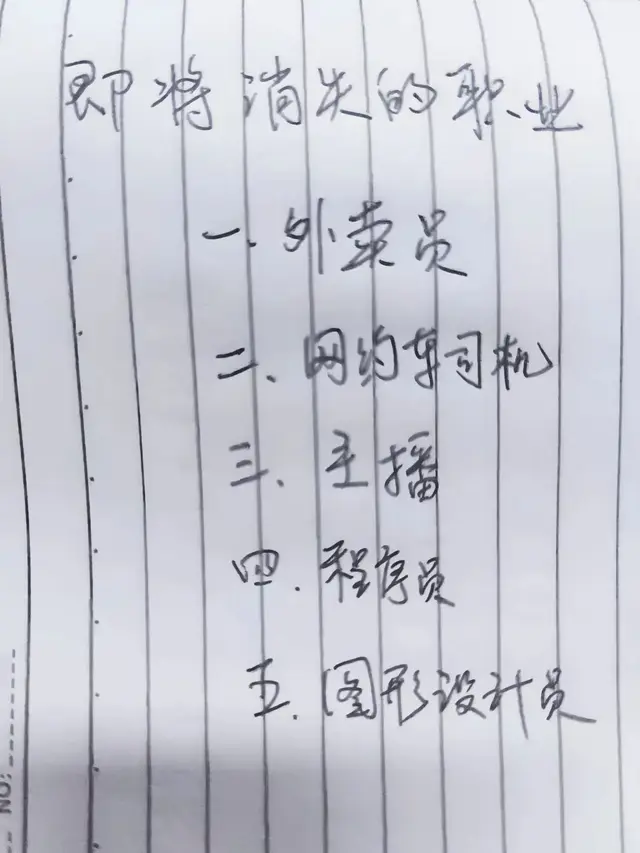 即将消失的职业
一.外卖员
二.网约车司机
三.主播
四.程序员
五.图形设计员
NO: